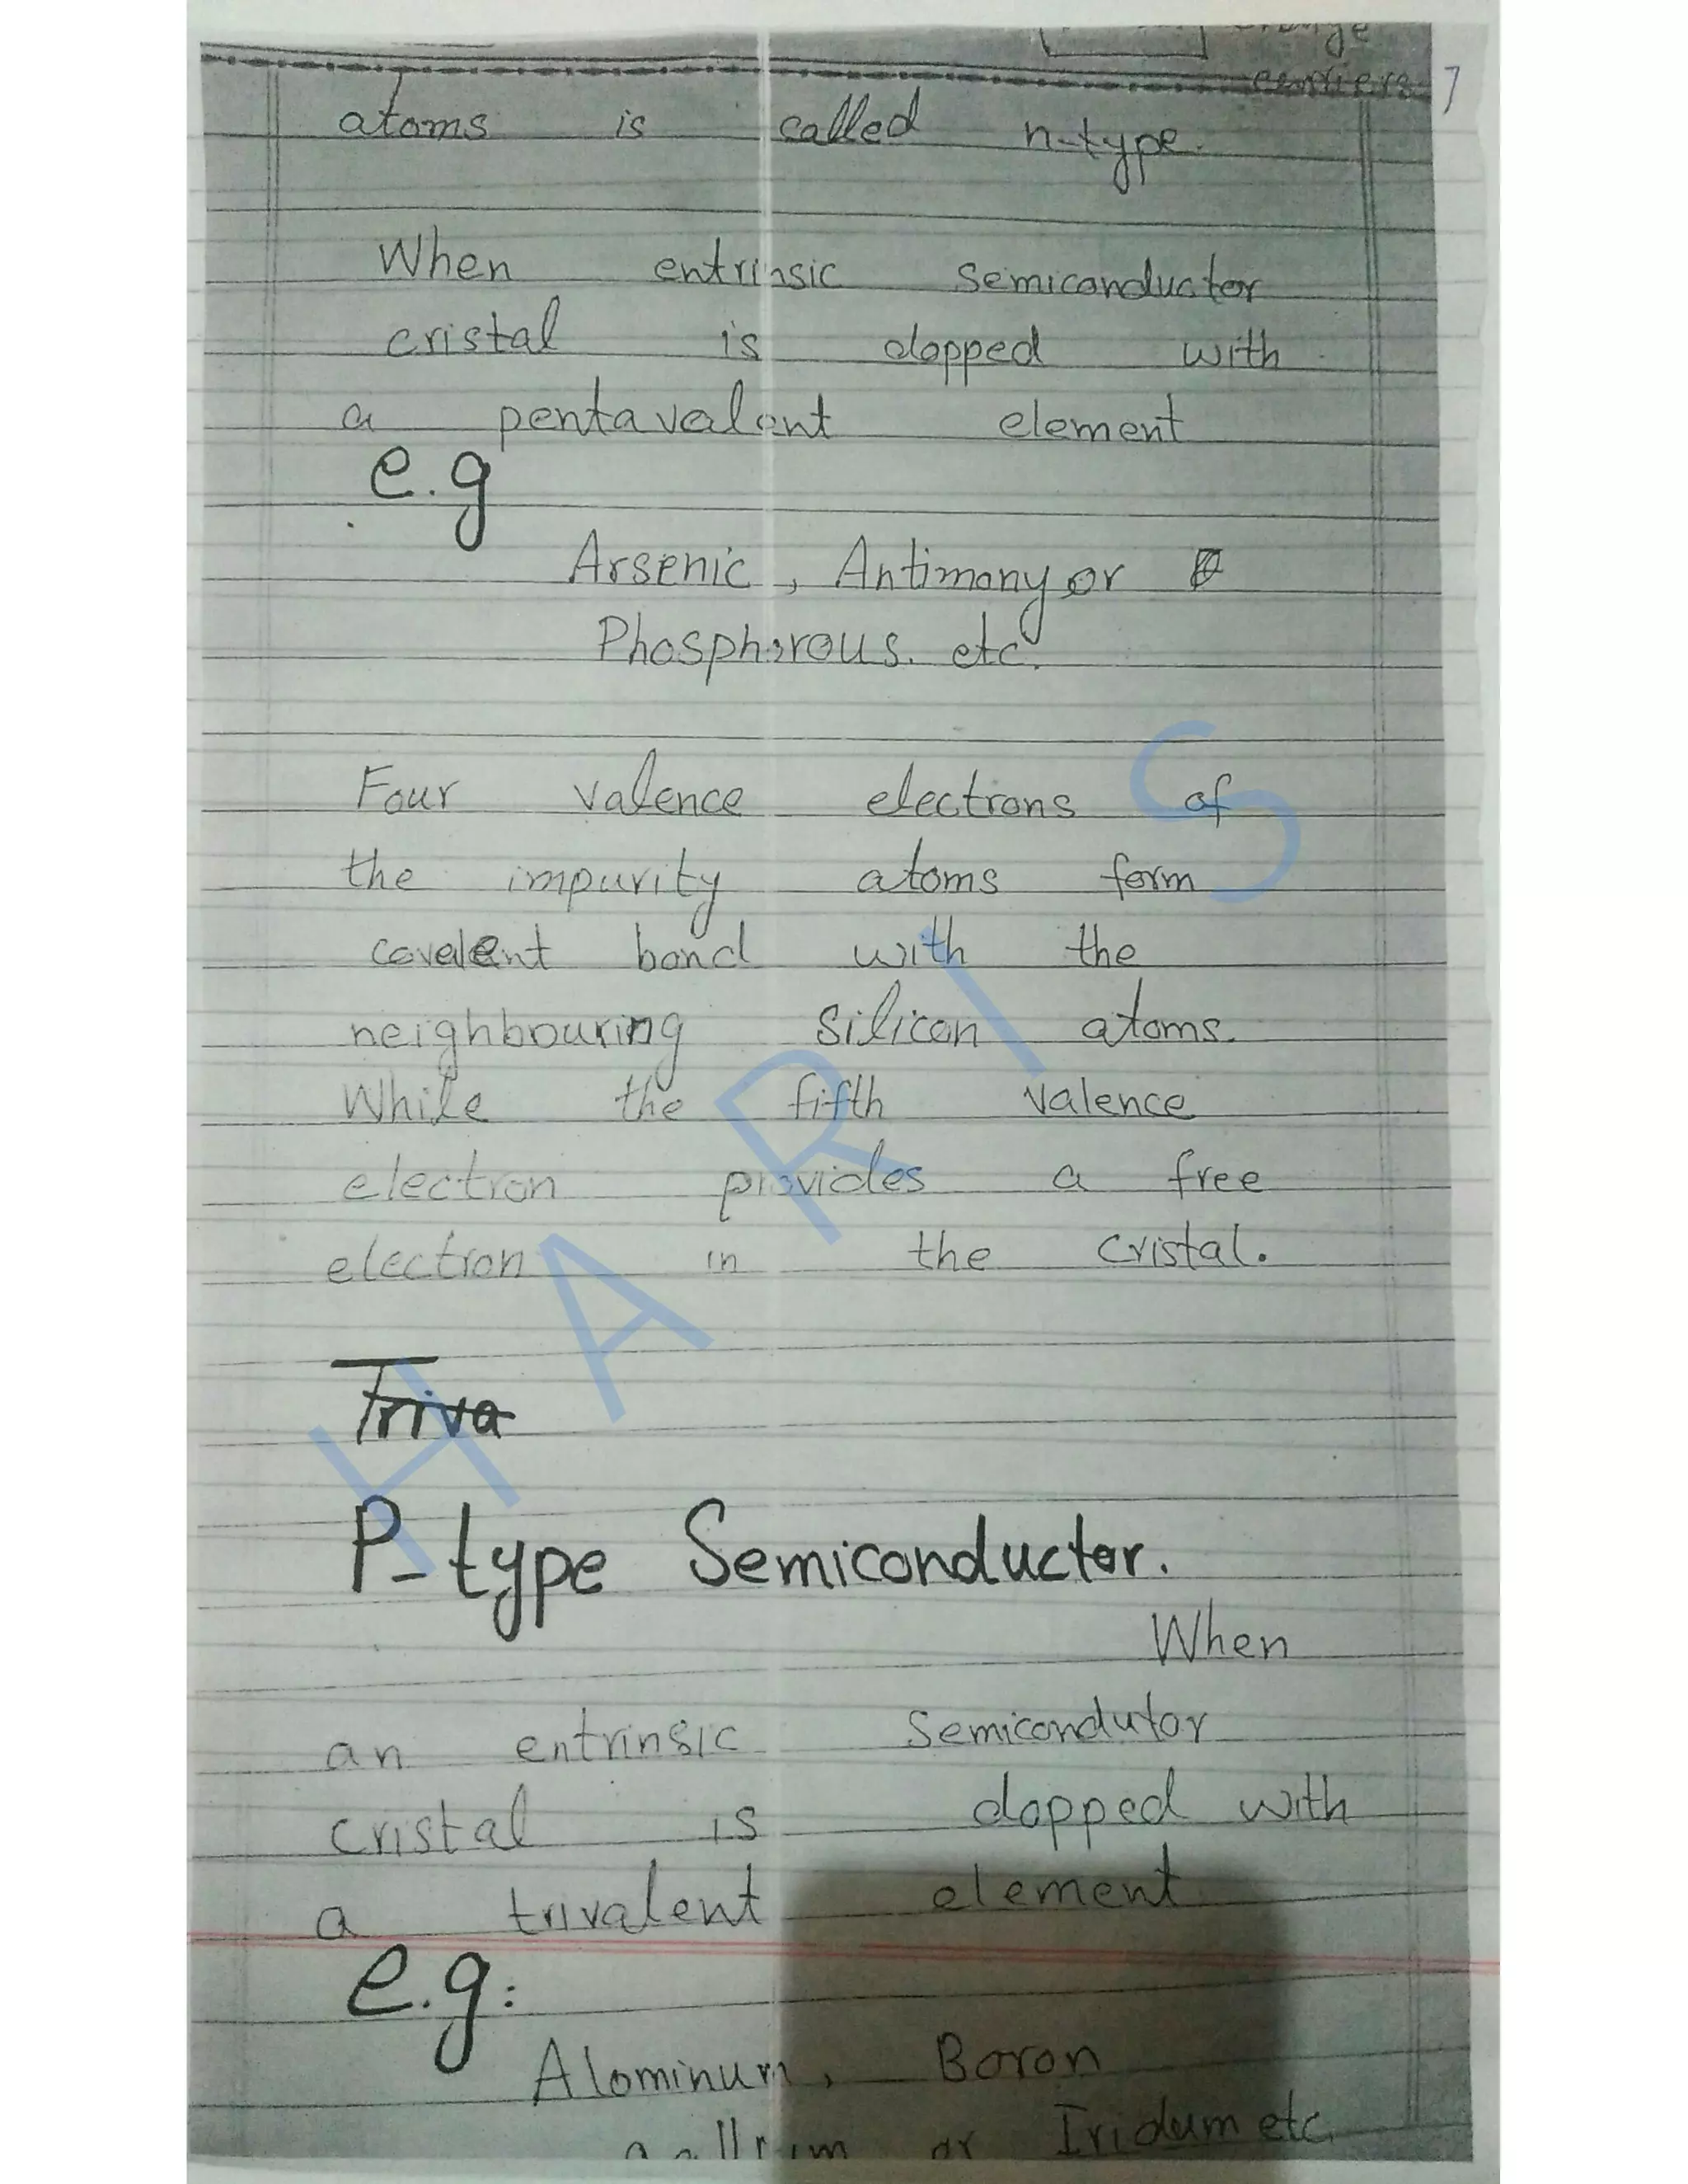 charge
carriers 7
atoms is called n-type.
When entrinsic semiconductor
cristal is dopped with
a pentavalent element
e.g
Arsenic, Antimony or
Phosphorous. etc.
Four valence electrons of
the impurity atoms form
covelent bond with the
neighbouring silicon atoms.
While the fifth valence
electron provides a free
electron in the cristal.
Triva
P-type Semiconductor.
When
an entrinsic Semicondutor
cristal is dopped with
a trivalent element
e.g:
Alominum, Boron
gallium or Iridum etc
HARIS